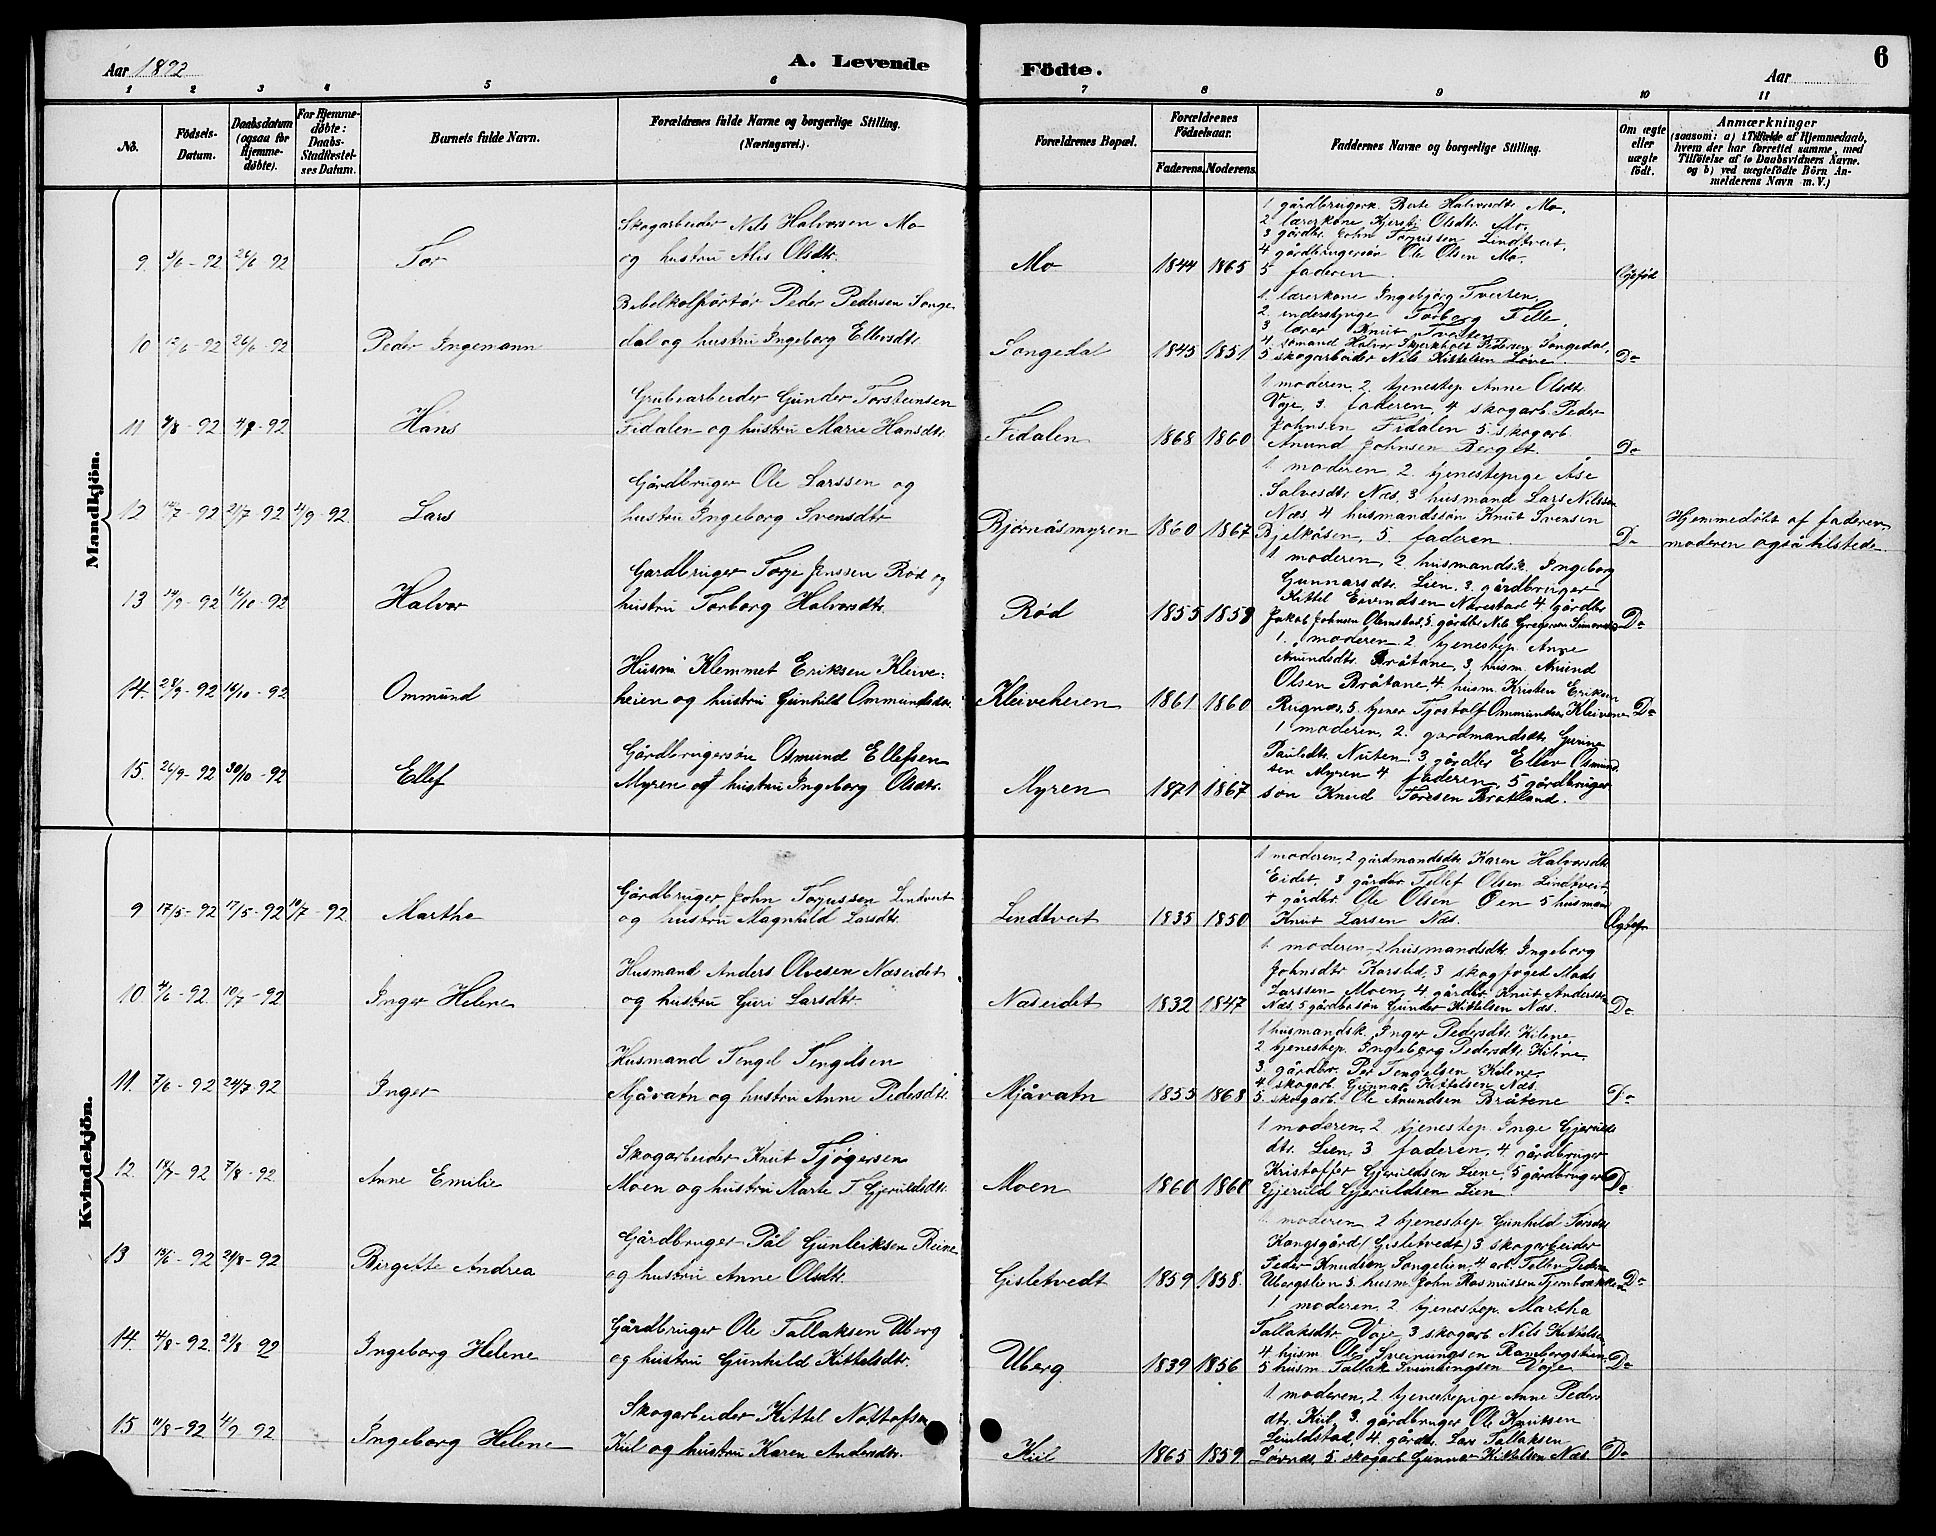 Aar 1892
A. Levende Födte.
Aar
6
1 2 3 4 5 6 7 8 9 10 11
No.
Födsels-Datum.
Daabsdatum (ogsaa for Hjemmedøbte).
For Hjemmedøbte: Daabs-Stadfæstelses Datum.
Barnets fulde Navn.
Forældrenes fulde Navne og borgerlige Stilling. (Næringsvei.)
Forældrenes Bopæl.
Forældrenes Födselsaar.
Faderens. Moderens.
Faddernes Navne og borgerlige Stilling.
Om ægte eller uægte født.
Anmærkninger
(saasom: a) i Tilfælde af Hjemmedaab, hvem der har forrettet samme, med Tilföielse af to Daabsvidners Navne. og b) ved uægtefødte Börn Anmelderens Navn m.V.)
Mandkjön.
9. 26/6 92 Tor
Skogarbeider Nils Halvorsen Mo
og hustru Alis Olsdtr.
Mo 1844 1865
1 gårdbrugerk. Berte Halvorsdtr Mo.
2 lærerkone Kjersti Olsdtr. Mo.
3 gårdbr. John Torjussen Lindtveit.
4 gårdbrugersøn Ole Olsen Mo.
5 faderen.
10 12/6-92 26/6-92 Peder Ingemann
Bibelkolportör Peder Pedersen Songe
dal og hustru Ingeborg Ellefsdtr
Songedal 1845 1851
1. lærerkone Ingebjörg Tveiten,
3 lærer Knut Tveiten
4. sömand Halvor Pedersen Songedal,
5 skogarbeider Nils Kittelsen Löine. Do
11 7/8-92 4/9-92 Hans
Grubearbeider Gunder Torsteinsen
Fidalen og hustru Marie Hansdtr
Fidalen 1868 1860
1 moderen, 2 tjenestep. Anne Olsdtr.
Voje, 3. faderen, 4 skogarb. Peder
Johnsen Fidalen 5. skogarb.
Anund Johnsen Berget. Do
12 21/7-92 4/9-92 Lars
Gårdbruger Ole Larssen og
hustru Ingeborg Svensdtr
Bjørnåsmyren 1860 1867
1 moderen, 2. tjenestepige Åse
Salvesdtr Næs. 3 husmand Lars Nilssen
Næs 4 husmandssön Knut Svensen
Bjelkåsen, 5. faderen. Do
Hjemmedöbt af faderen,
moderen også tilstede
13 14/9-92 16/10-92 Halvor
Gardbruger Torje Jenssen Röd og
hustru Torborg Halvorsdtr.
Rød 1855 1858
1 moderen, 2 husmandsk. Ingeborg
Gunnarsdtr. Lien, 3. gårdbruger
Kittel Eivindsen Narestad 4. gårdbr
Jakob Johnsen Olimstad, 5. gårdbr Nils Gregersen Do
14. 28/9-92 16/10-92 Ommund
Husm. Klemmet Eriksen Kleive-
heien og hustru Gunhild Ommundsdtr.
Kleiveheien 1861 1860
1. moderen, 2 tjenestep. Anne
Anundsdtr. Bråtane, 3, husm. Anund
Olsen Bråtane, 4. husm. Kristen Eriksen
Rugnæs, 5. tjener Tjostolf Ommundsen Kleivene Do
15. 26/9-92 30/10-92 Ellef
Gårdbrugersön Osmund Ellefsen
Myren og hustru Ingeborg Olsdtr.
Myren 1871 1867
1 moderen, 2. gardmandsdtr Gurine
Paulsdtr. Nuten, 3 gårdbr Ellev Osmund
sen Myren 4 faderen, 5 gårdbruger
sön Knud Toresen Bratland.
Kvindekjön.
9 17/5-92 17/5-92 10/7-92 Marthe
Gårdbruger John Torjussen Lindtveit
og hustru Magnhild Larsdtr.
Lindtveit 1835 1850
1 moderen, 2 gårdmandsdtr Karen Halvorsdtr
Eidet, 3 gårdbr Tellef Olsen Lindtveit,
4 gårdbr. Ole Olsen Öen 5 husmand
Knut Larsen Næs.
10. 4/6-92 10/7-92 Inger Helene
Husmand Anders Olvesen Næseidet
og hustru Guri Larsdtr.
Næseidet 1832 1847
1. moderen 2 husmandsdtr. Ingeborg
Johnsdtr Karslid, 3 skogfoged Mads
Larssen Moen, 4 gårdbr Knut Anderssen
Næs, 5 gårdbrsön Gunder Kittelsen Næs. Do
11. 7/6-92 24/7-92 Inger
Husmand Tengel Tengelsen
Mjåvatn og hustru Anne Pedersdtr.
Mjåvatn 1855 1868
1 husmandsk. Inger Pedersdtr. Kilene
2 tjenestep. Ingeborg Pedersdtr. Kilene
3. gårdbr. Per Tengelsen Kilene
4. skogarb. Gunnar Kittelsen Næs.
5. skogarb. Ole Anundsen Bråtene Do
12. 7/8-92 Anne Emilie
Skogarbeider Knut Tjögersen
Moen og hustru Marte T. Gjeruldsdtr.
Moen 1860 1860
1 moderen, 2 tjenestep. Inge Gjerulds
dtr. Lien, 3 faderen, 4 gårdbruger
Kristoffer Gjeruldsen Liene, 5 gårdbruger
Gjeruld Gjeruldsen Lien Do
13 21/8-92 Birgitte Andrea
Gårdbruger Pål Gunleiksen Reine
og hustru Anne Olsdtr.
Gisletvedt 1859 1858.
1. moderen, 2 tjenestep. Gunhild Torsdtr
Kongsgård (Gisletvedt) 3. skogarbeider
Peder Knudsen Songelien, 4 arb. Tellev Peders
Ubergslien 5. husm. John Rasmussen Tjernbakken Do
14. 4/8-92. 21/8 92 Ingeborg Helene
Gårdbruger Ole Tallaksen Uberg
og hustru Gunhild Kittelsdtr.
Uberg 1839 1856
1. moderen, 2 tjenestep. Martha
Tallaksdtr. Voje 3. skogarb. Nils Kittelsen
4. husm. Ole Sveinungsen Ramborgslien
5 husm. Tallak Sveinungsen Voje Do
15 11/8-92 4/9 92 Ingeborg Helene
Skogarbeider Kittel Nottofsen
Kiil og hustru Karen Andersdtr.
Kiil 1865 1859
1. moderen, 2 tjenestepige Anne Peders
dtr. Kiil, 3. gårdbruger Ole Knutsen
Leiuldstad, 4. gårdbr. Lars Tallaksen
Lövnæs, 5. skogarb. Gunnar Kittelsen Næs. Do